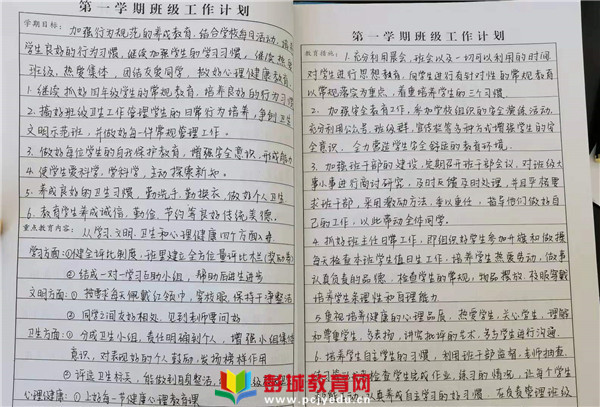 第一学期班级工作计划
学期目标：加强行为规范的养成教育，结合学校每月活动，培养
学生良好的行为习惯，继续加强学生的学习习惯，继续热爱
班级，热爱集体，团结友爱同学，做好心理健康教育。
1.继续抓好同年级学生的常规教育，培养良好的行为习惯
2.搞好班级卫生工作管理学生的日常行为培养，争创卫生
文明示范班，并做好每一件常规管理工作。
3.做好每位学生的自我保护教育，增强安全意识，形成能力
4.使学生爱科学，学科学，主动探索新发。
5.养成良好的卫生习惯，勤洗手，勤换衣，做好个人卫生
6.教育学生养成诚信、勤俭、节约等良好传统美德。
重点教育内容：从学习、文明、卫生和心理健康四个方面入手
学习方面：①健全评比制度，班里建立全方位量评比栏（奖励表）
②结成一对一学习互助小组，帮助后进生进步
文明方面：①按要求每天佩戴红领巾，穿校服，保持干净整洁
②同学之间友好相处，见到老师要问好
卫生方面：①分成卫生小组，责任明确到个人，增强小组集体
意识，对表现好的个人鼓励，发扬榜样作用
②评选卫生标兵，能做到自我整洁，
心理健康：①上好每一节健康心理教育课
第一学期班级工作计划
教育措施：1.充分利用晨会、班会以及一切可以利用的时间
对学生进行思想教育，向学生进行有针对性的常规教育
以常规落实为重点，着重培养学生的三习惯。
2.加强安全教育工作，参加学校组织的安全演练活动，
充分利用公众号，班级群，宣传栏等多种方式增强学生的安
全意识，合力营造学生安全舒适的教育环境。
3.加强班干部的建设，定期召开班干部会议，对班级大
事小事进行商讨研究，及时反馈及时处理，并且严格要
求班干部，采用激励方法，委以重任，指导他们做好自
己的工作，以此带动全体同学。
4.抓好班主任日常工作，即组织好学生参加升旗和做操
每天检查本班学生值日生工作，培养学生热爱劳动，做事
认真负责的品德，检查学生的常规，物品摆放，校服穿戴
培养学生条理性和自理能力
5.重视培养健康的心理品质，热爱学生，关心学生，理解
和尊重学生，多表扬，讲究批评的艺术，多与学生进行沟通。
6.培养学生自主学习的习惯，利用班干部监督，老师抽查，
检查学生完成作业，练习的情况，让每个学生
认真养成自主学习的好习惯，在负责管理班级
彭城教育网
www.pcjyedu.cn